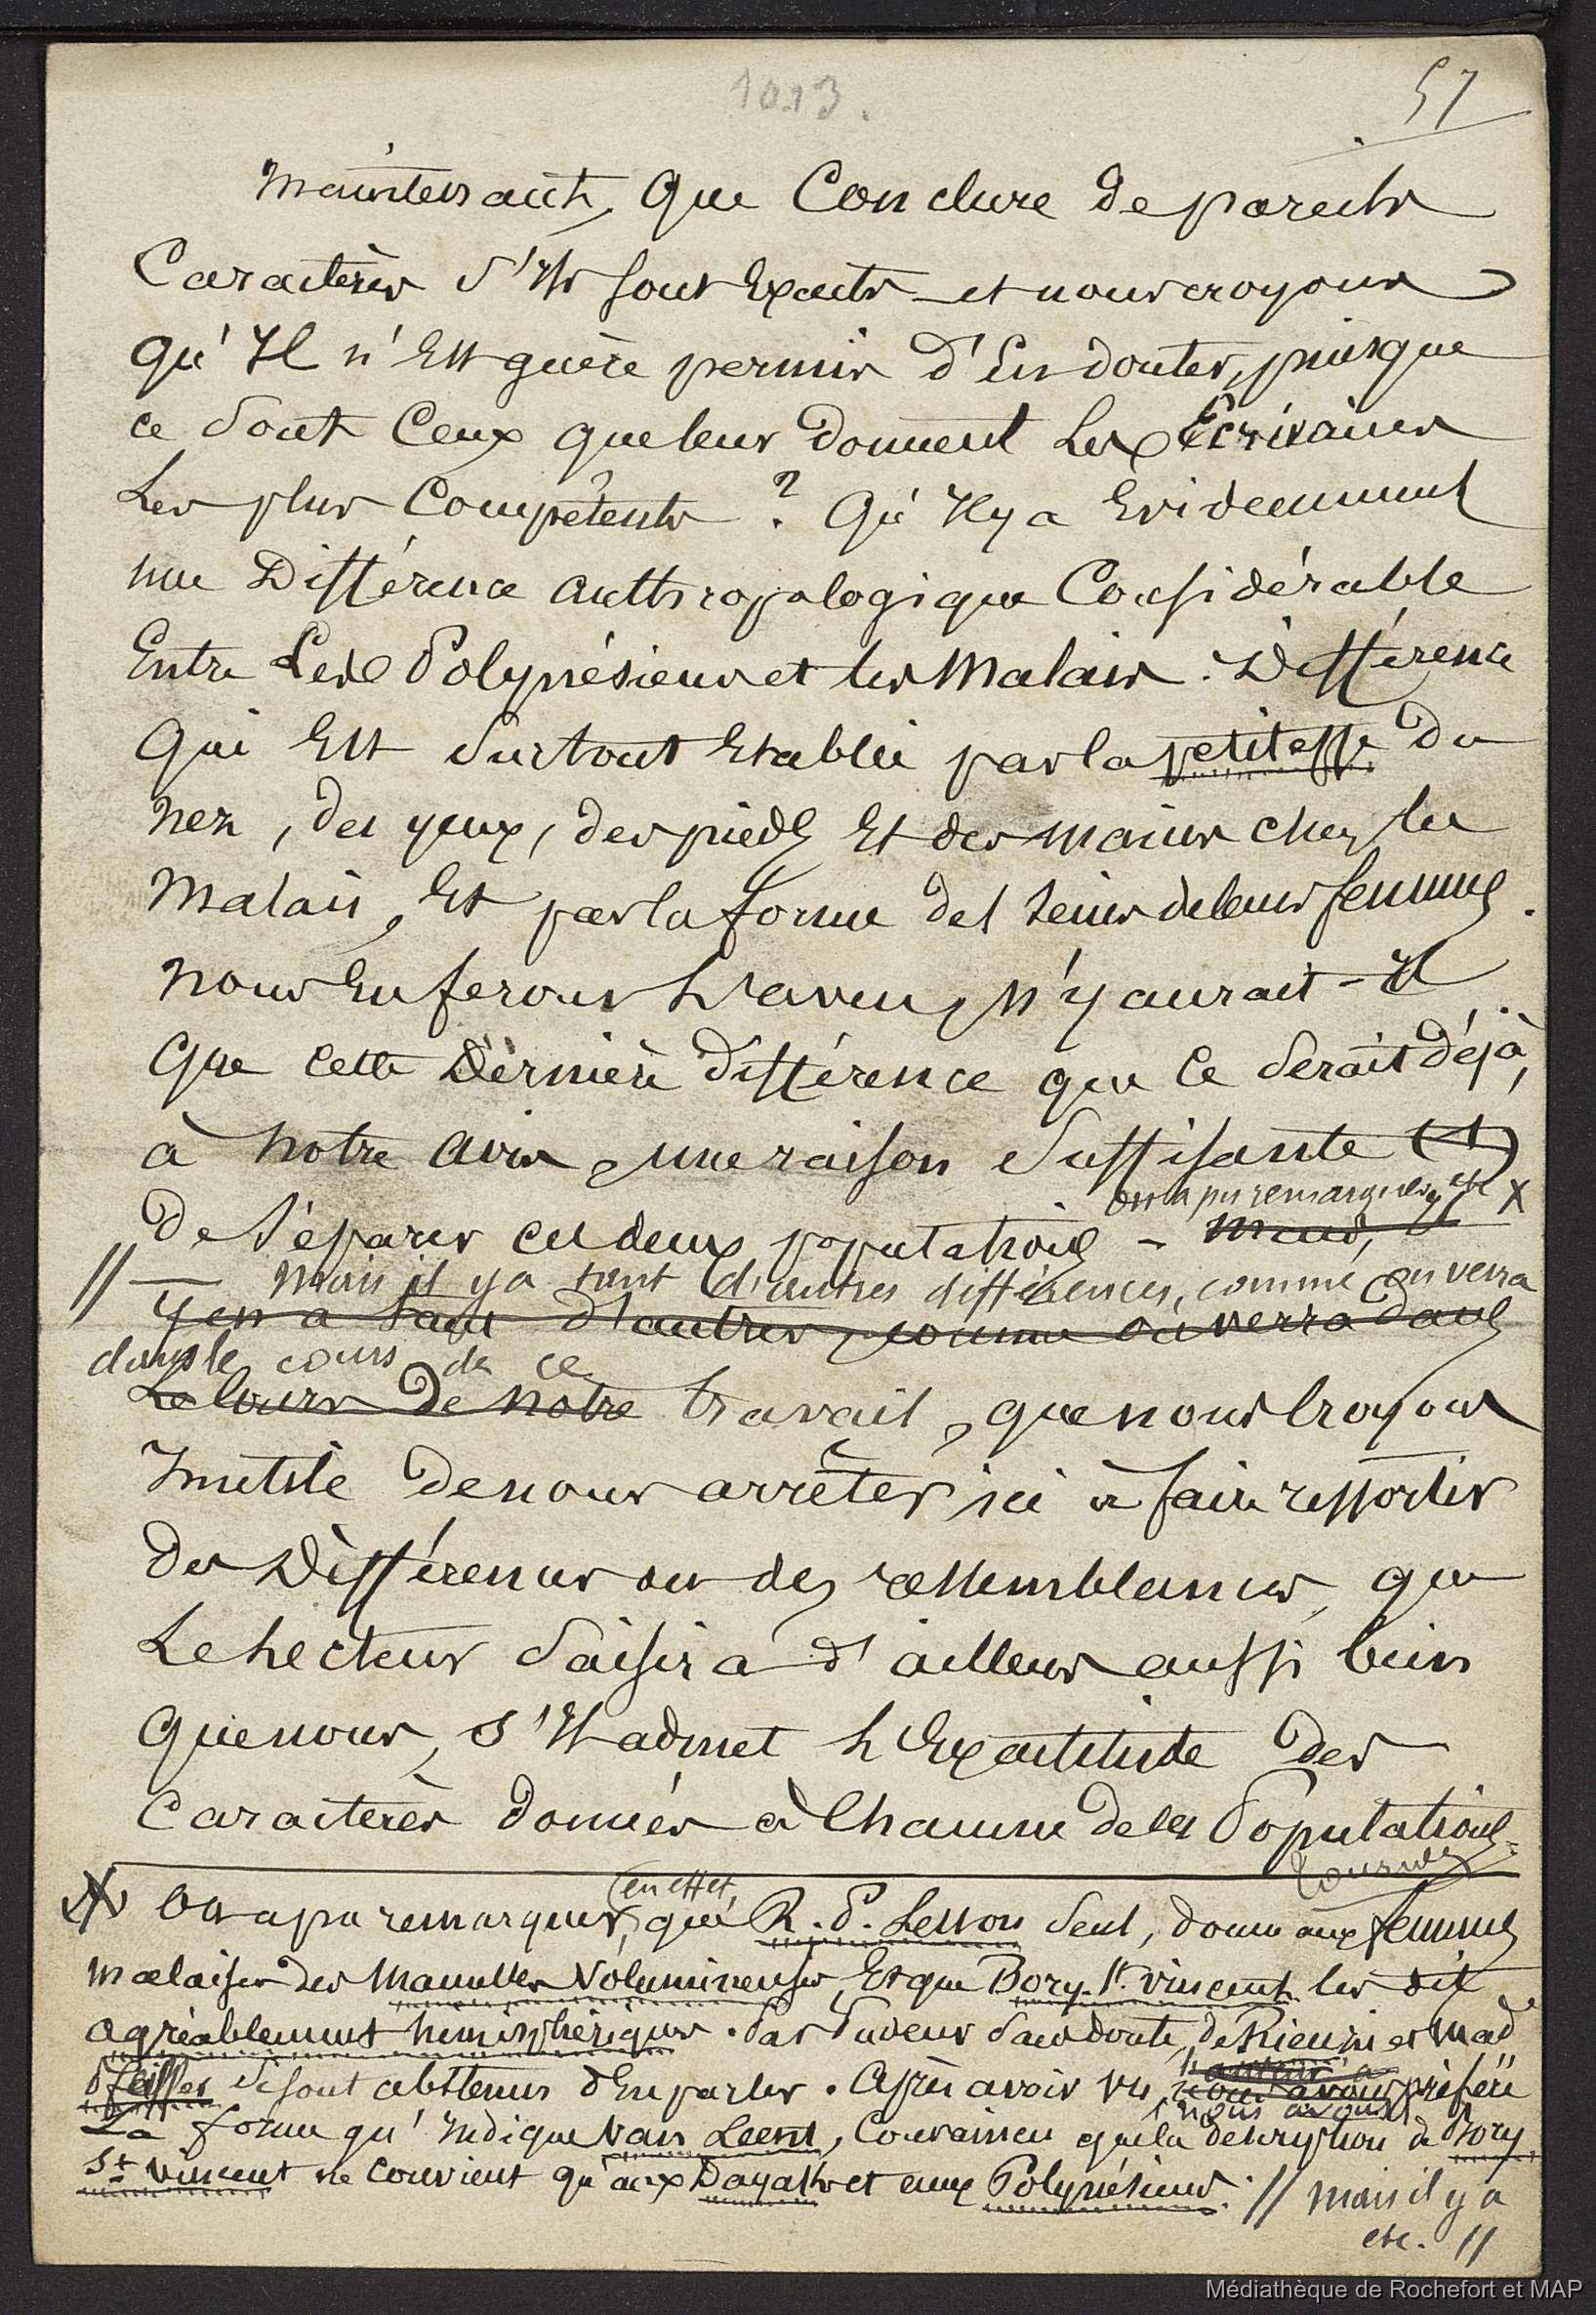 1013.
57
Maintenant, que Conclure de pareils
Caractères s'ils sont Exacts et nous croyons
qu'Il n'Est guère permis d'En douter, puisque
ce sont Ceux que leur donnent Les Écrivains
Les plus Compétents ? Qu'Il y a Evidemment
une Différence anthropologique Considérable
Entre Les Polynésiens et les Malais. Différence
qui Est surtout Etablie par la petitesse du
nez, des yeux, des pieds Et des mains chez les
Malais, Et par la forme des seins de leurs femmes.
Nous En ferons L'aveu, n'y aurait-Il
que cette Dernière différence que Ce serait déjà,
à notre avis, une raison suffisante (1)
on a pu remarquer, etc X
De séparer ces deux populations - Mais, Il
// — Mais il y a tant d'autres différences, comme on verra
y en a tant d'autres, comme on verra dans
dans le cours de ce
Le Cours De notre travail, que nous Croyons
Inutile de nous arrêter ici à faire ressortir
des Différences ou des ressemblances, que
Le Lecteur saisira d'ailleurs aussi bien
que nous, s'Il admet L'Exactitude des
Caractères donnés à Chacune de ces Populations.
tournez
X On a pu remarquer, en effet, que R. P. Lesson seul, donne aux femmes
malaises des Mamelles Volumineuses, Et que Bory St. Vincent les dit
agréablement hémisphériques. Par Pudeur sans doute, de Rienzi et Mad.e
Pfeiffer se sont abstenus d'En parler. Après avoir vu, l'auteur a
nous avons préféré
nous avons
La forme qu'Indique Van Leent, Convaincu que la description de Bory
St Vincent ne Convient qu'aux Dayaks et aux Polynésiens. // Mais il y a
etc. //
Médiathèque de Rochefort et MAP